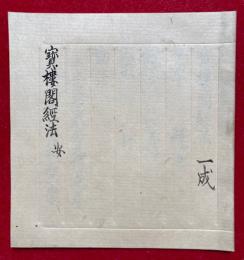 寳樓閣經法 安
一成